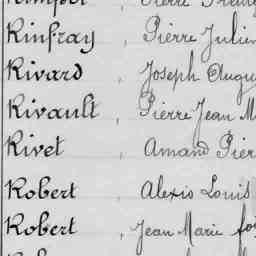 Rinfray, Pierre Julien
Rivard, Joseph Augu
Rivault, Pierre Jean M
Rivet, Amand Pier
Robert, Alexis Louis
Robert, Jean Marie